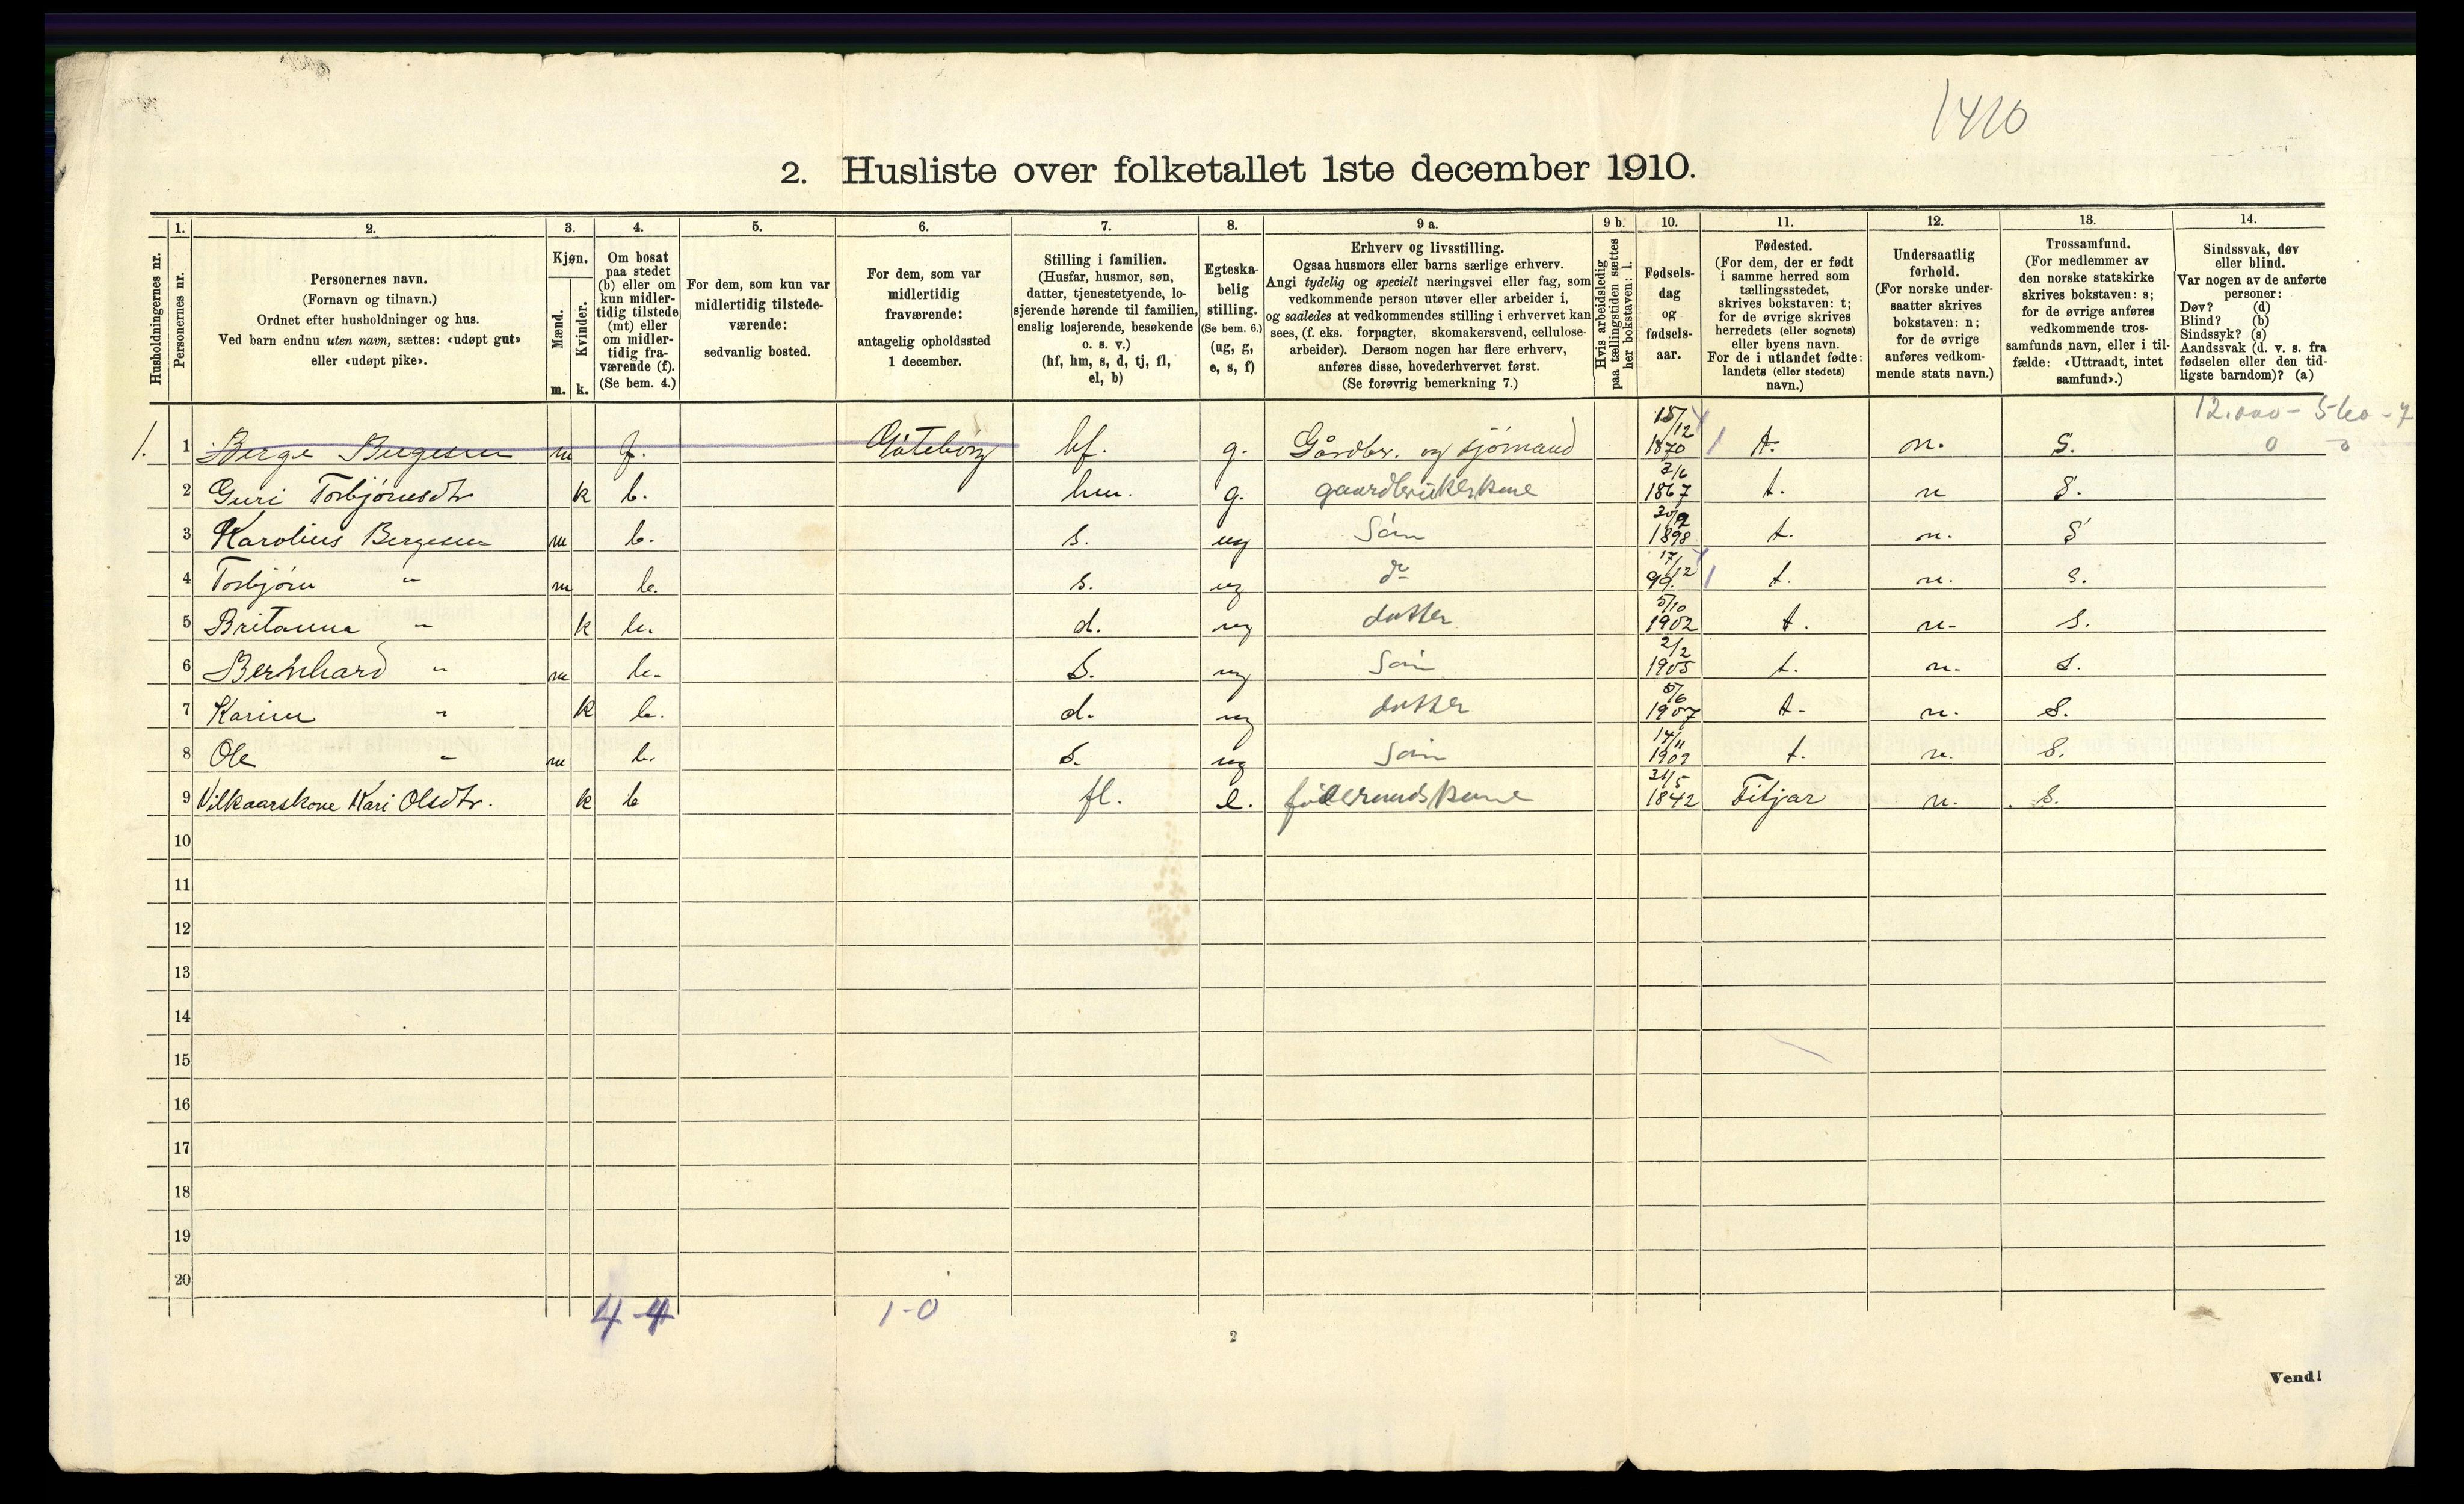 1410
2. Husliste over folketallet 1ste december 1910.
Husholdningernes nr.
1. Personernes nr.
2. Personernes navn.
(Fornavn og tilnavn.)
Ordnet efter husholdninger og hus.
Ved barn endnu uten navn, sættes: «udøpt gut»
eller «udøpt pike».
3. Kjøn.
Mænd. m.
Kvinder. k.
4. Om bosat
paa stedet
(b) eller om
kun midler-
tidig tilstede
(mt) eller
om midler-
tidig fra-
værende (f).
(Se bem. 4.)
5. For dem, som kun var
midlertidig tilstede-
værende:
sedvanlig bosted.
6. For dem, som var
midlertidig
fraværende:
antagelig opholdssted
1 december.
7. Stilling i familien.
(Husfar, husmor, søn,
datter, tjenestetyende, lo-
sjerende hørende til familien,
enslig losjerende, besøkende
o. s. v.)
(hf, hm, s, d, tj, fl,
el, b)
8. Egteska-
belig
stilling.
(Se bem. 6.)
(ug, g,
e, s, f)
9 a. Erhverv og livsstilling.
Ogsaa husmors eller barns særlige erhverv.
Angi tydelig og specielt næringsvei eller fag, som
vedkommende person utøver eller arbeider i,
og saaledes at vedkommendes stilling i erhvervet kan
sees, (f. eks. forpagter, skomakersvend, cellulose-
arbeider). Dersom nogen har flere erhverv,
anføres disse, hovederhvervet først.
(Se forøvrig bemerkning 7.)
9 b. Hvis arbeidsledig
paa tællingstiden sættes
her bokstaven: l.
10. Fødsels-
dag
og
fødsels-
aar.
11. Fødested.
(For dem, der er født
i samme herred som
tællingsstedet,
skrives bokstaven: t;
for de øvrige skrives
herredets (eller sognets)
eller byens navn.
For de i utlandet fødte:
landets (eller stedets)
navn.)
12. Undersaatlig
forhold.
(For norske under-
saatter skrives
bokstaven: n;
for de øvrige
anføres vedkom-
mende stats navn.)
13. Trossamfund.
(For medlemmer av
den norske statskirke
skrives bokstaven: s;
for de øvrige anføres
vedkommende tros-
samfunds navn, eller i til-
fælde: «Uttraadt, intet
samfund».)
14. Sindssvak, døv
eller blind.
Var nogen av de anførte
personer:
Døv? (d)
Blind? (b)
Sindssyk? (s)
Aandssvak (d. v. s. fra
fødselen eller den tid-
ligste barndom)? (a)
12.000 -
1. 1 Berge Bergesen m f. Göteborg hf. g. Gårdbr. og sjömand 15/12 1870 t. n. S. 0
2 Guri Torbjörnsdtr k b. hm. g. gaardbrukerkone 3/6 1867 t. n S.
3 Karolius Bergesen m b. s. ug Sön 30/9 1898 t. n. S
4 Torbjörn " m b. s. ug do 17/12 99. t. n. s.
5 Britanna " k b. d. ug datter 5/10 1902 t. n. S.
6 Bernhard " m b. S. ug Sön 2/2 1905 t. n. S.
7 Karine " k b. d. ug datter 5/6 1907 t. n. S.
8 Ole " m b. S. ug Sön 14/11 1909 t. n. S.
9 Vilkaarskone Kari Olsdtr. k b fl. e. föderaadskone 31/5 1842 Fitjar n. S.
10
11
12
13
14
15
16
17
18
19
20
4-4 1-0
2
Vend!